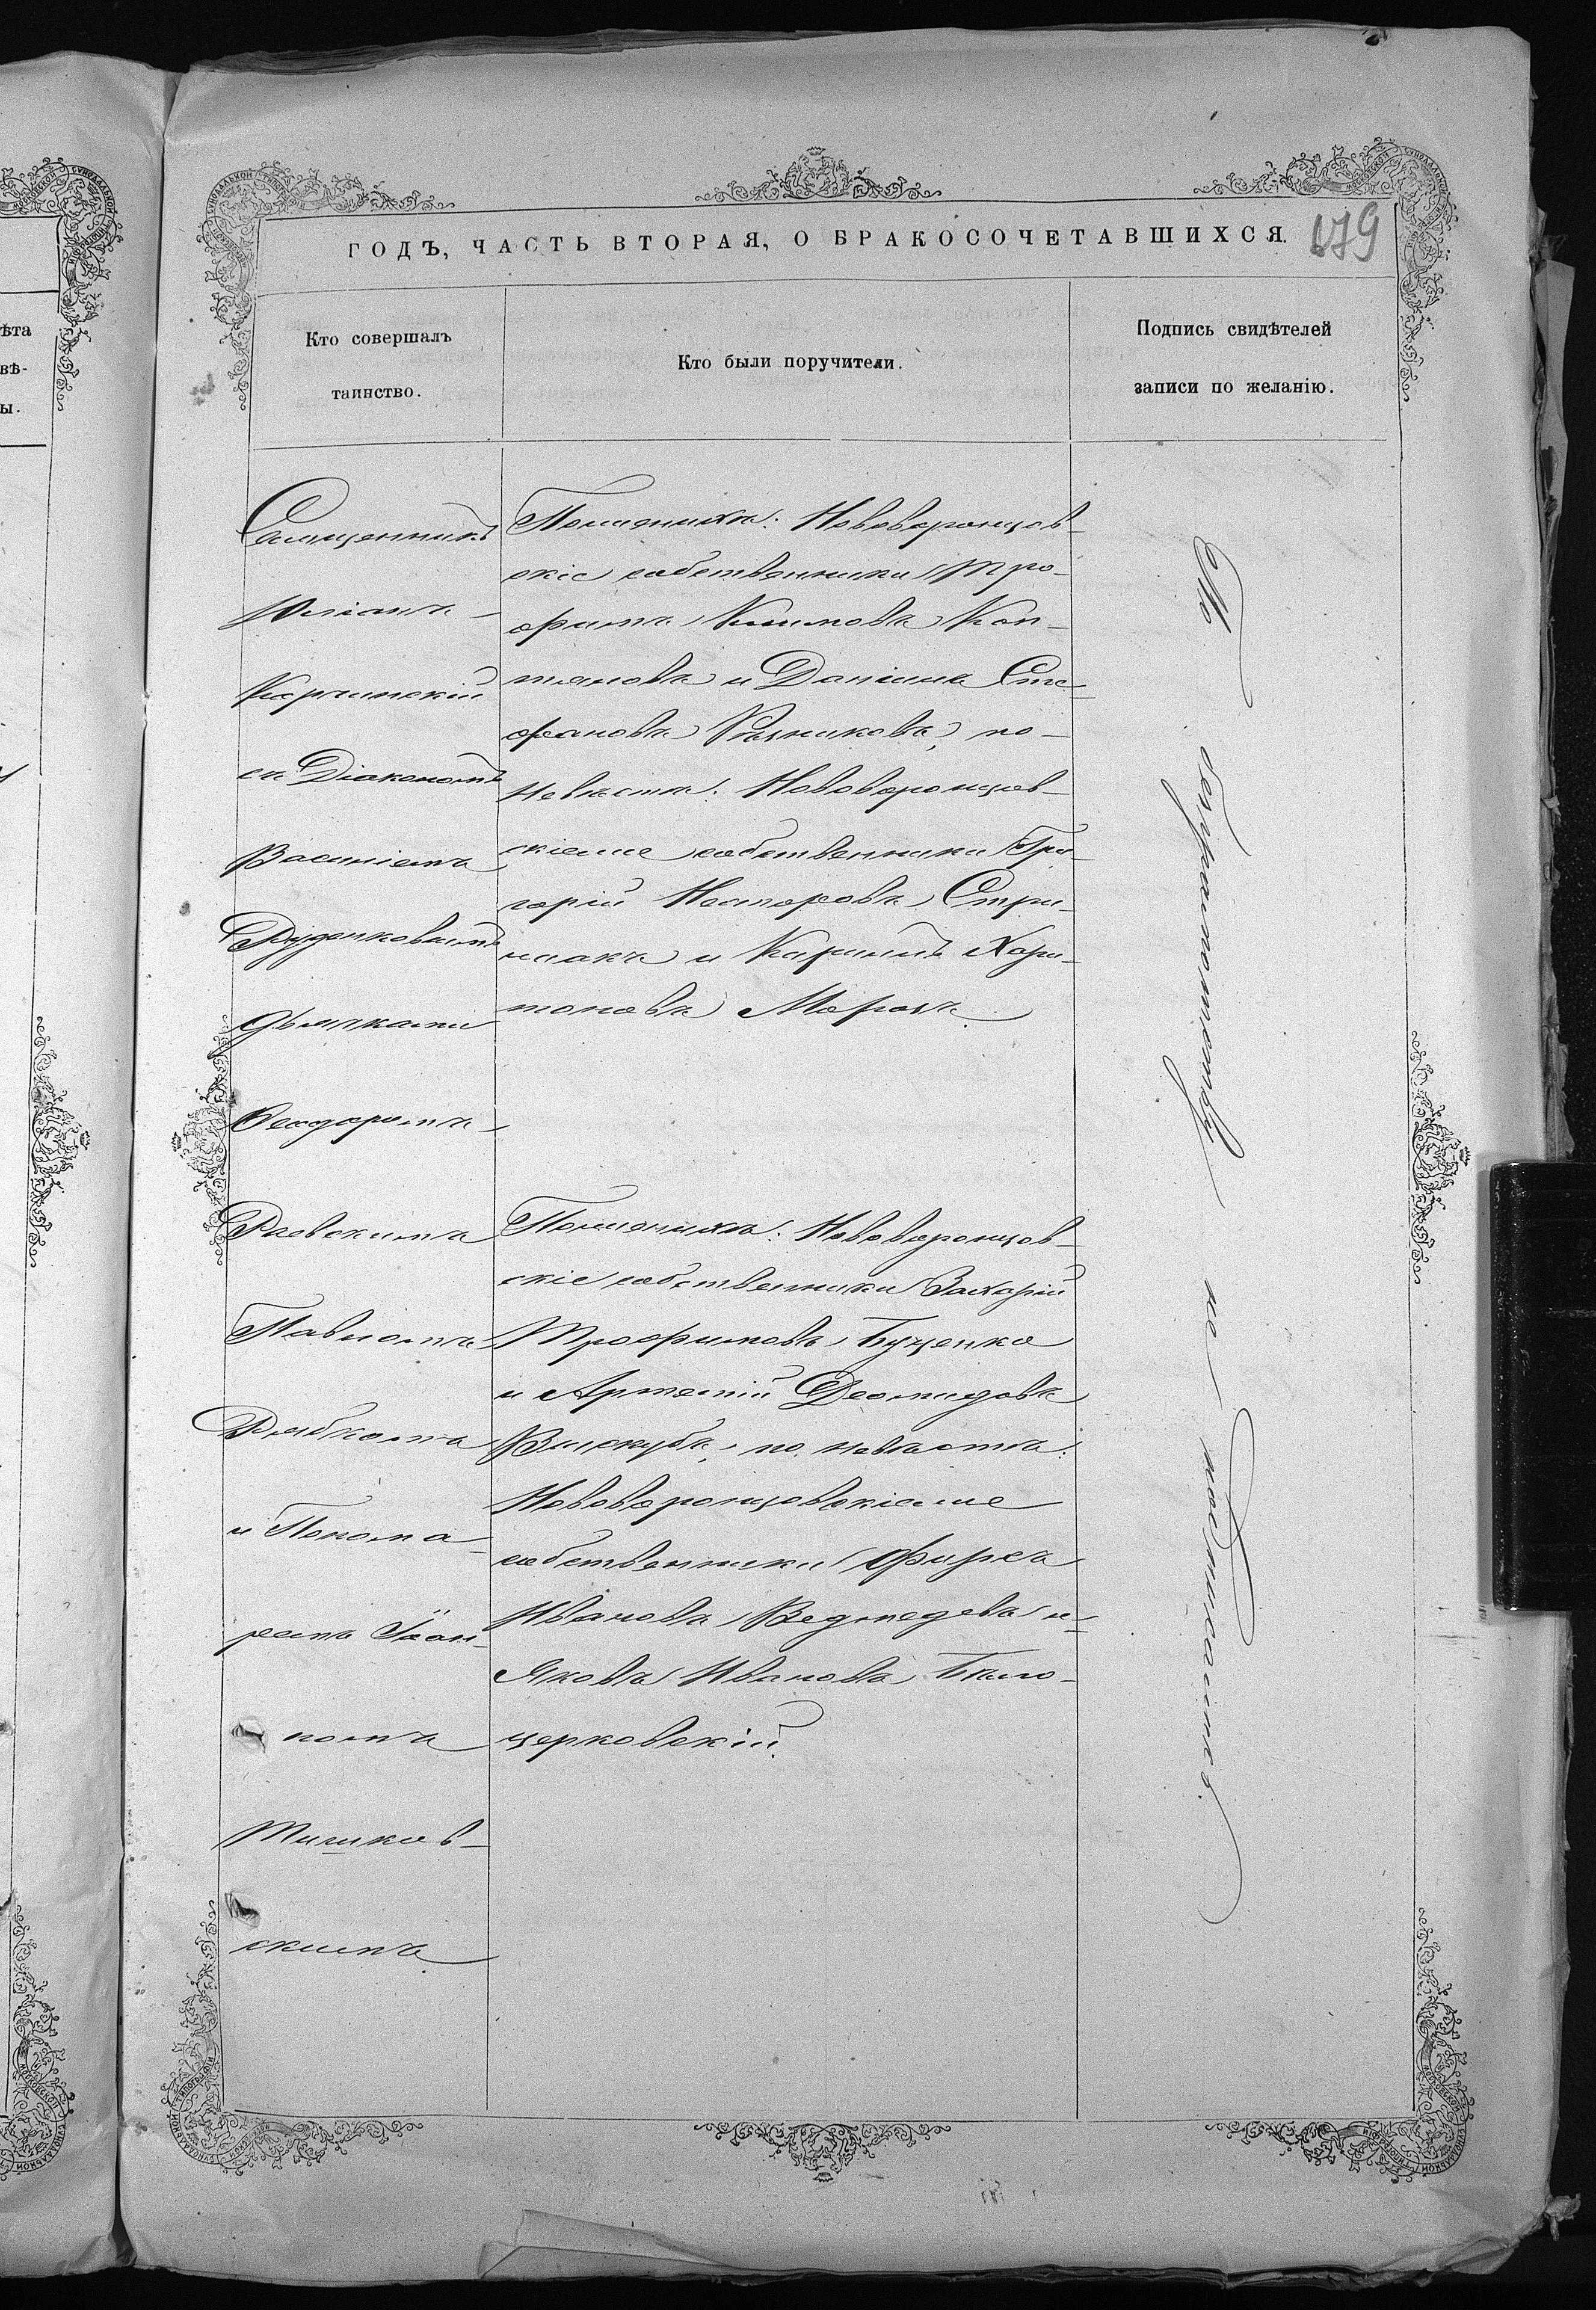 ГОДЪ, ЧАСТЬ ВТОРАЯ, О БРАКОСОЧЕТАВШИХСЯ.
679
Кто совершалъ
таинство.
Кто были поручители.
Подпись свидѣтелей
записи по желанію.
Священникъ
Іоаннъ
Карчинскій
съ Діакономъ
Василіемъ
Руденковымъ
дьячками
Ѳеодоромъ
Раевскимъ
Павломъ
Рябкомъ
и Понома-
ремъ Іоан-
номъ
Тишков-
скимъ
По женихѣ: Нововоронцов-
скіе собственники Тро-
фимъ Климовъ Кап-
тановъ и Даніилъ Сте-
фановъ Рѣзниковъ, по
невѣстѣ: Нововоронцов-
скіеже собственники Гри-
горій Несторовъ Стри-
жакъ и Кириллъ Хари-
тоновъ Морозъ
По женихѣ: Нововоронцов-
скіе собственники Захарій
Трофимовъ Буценко
и Артемій Деомидовъ
Вискубъ, по невѣстѣ:
Нововоронцовскіеже
собственники Фирсъ
Ивановъ Ведмедевъ и
Яковъ Ивановъ Бѣло-
церковскій.
По безграмотству не подписались.